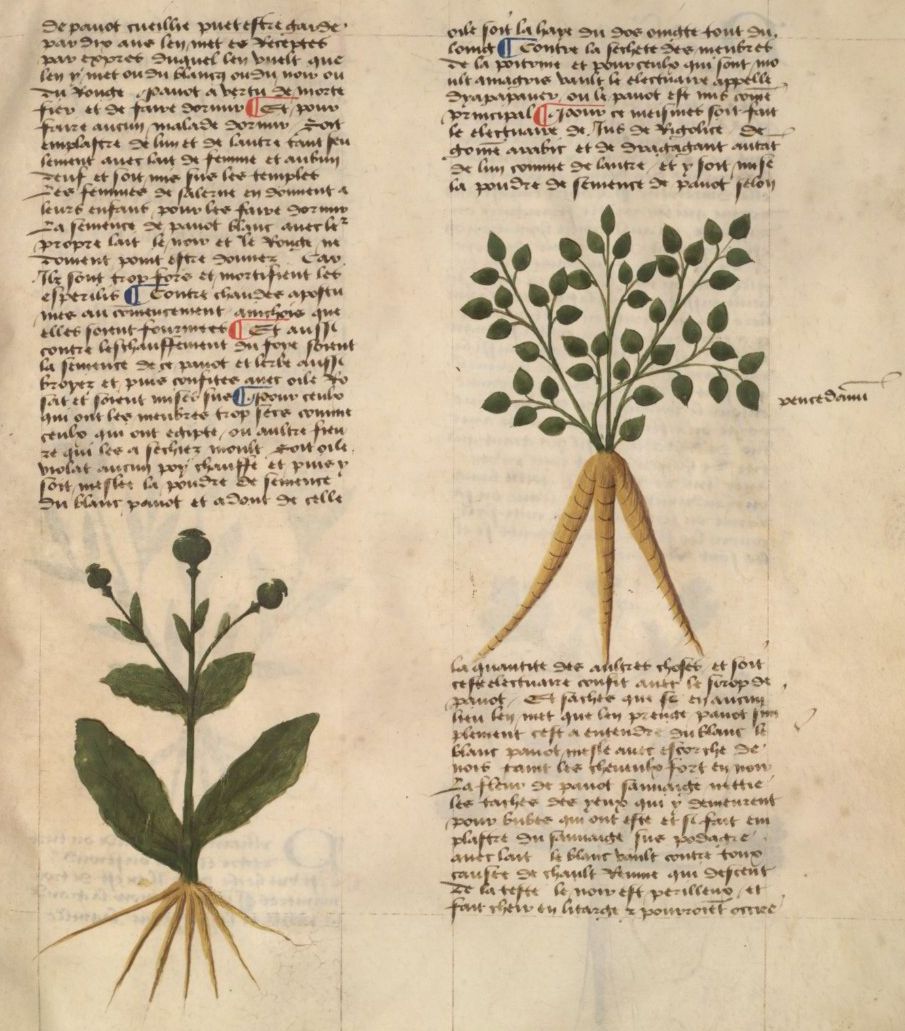 de pauot cueillie puet estre garde
par dix ans len met es Receptes
par expres duquel len vuelt que
len y met ou du blancq ou du noir ou
du Rouge Pauot a vertu de morte
fier et de faire dormir ¶ Et pour
faire aucun malade dormir Soit
emplastre de lun et de lautre tant seu
lement auec lait de femme et aubun
deuf et soit mis sus les temples
Les femmes de salerne en donnent a
leurs enfans pour les faire dormir
La semence de pauot blanc auec le
propre lait le noir et le Rouge ne
doiuent point estre donnez Car
Ilz sont trop fors et mortifient les
esperilz ¶ Contre chaudes apostu
mes au comencement ainchois que
elles soient fourmees ¶ Et aussi
contre leschauffement du foye soient
la semence de ce pauot et lerbe aussi
broyez et puis confites auec oile Ro
sat et soient mises sus ¶ Pour ceulx
qui ont les menbres trop secs comme
ceulx qui ont etique ou aultre fieu
re qui les a sechiez moult Soit oile
violat aucun poy chauffe et puis y
soit meslee la poudre de semence
du blanc pauot et adont de celle
oile soit la haye du dos oingte tout du
loing ¶ Contre la sechete des menbres
de la poitrine et pour ceulx qui sont mo
ult amagris vault le electuaire appelle
dyapapauer ou le pauot est mis come
principal ¶ Pour ce meismes soit fait
le electuaire de Jus de Rigolice de
gome arabic et de dragagant autat
de lun comme de lautre et y soit mise
la poudre de semence de pauot selon
peucedanu
la quantite des aultres choses et soit
cest electuaire confit auec le sirop de
pauot Et saches que se en aucun
lieu len met que len prenge pauot sim
plement cest a entendre du blanc le
blanc pauot mesle auec escorche de
nois taint les cheueulx fort en noir
La fleur de pauot sauuaige nettie
les taches des yeux qui y demeurent
pour bubes qui ont este et se fait em
plastre du sauuaige sus podagre
auec lait le blanc vault contre toux
causee de chault Reume qui descent
de la teste le noir est perilleux et
fait cheir en litargie et pourroient occire